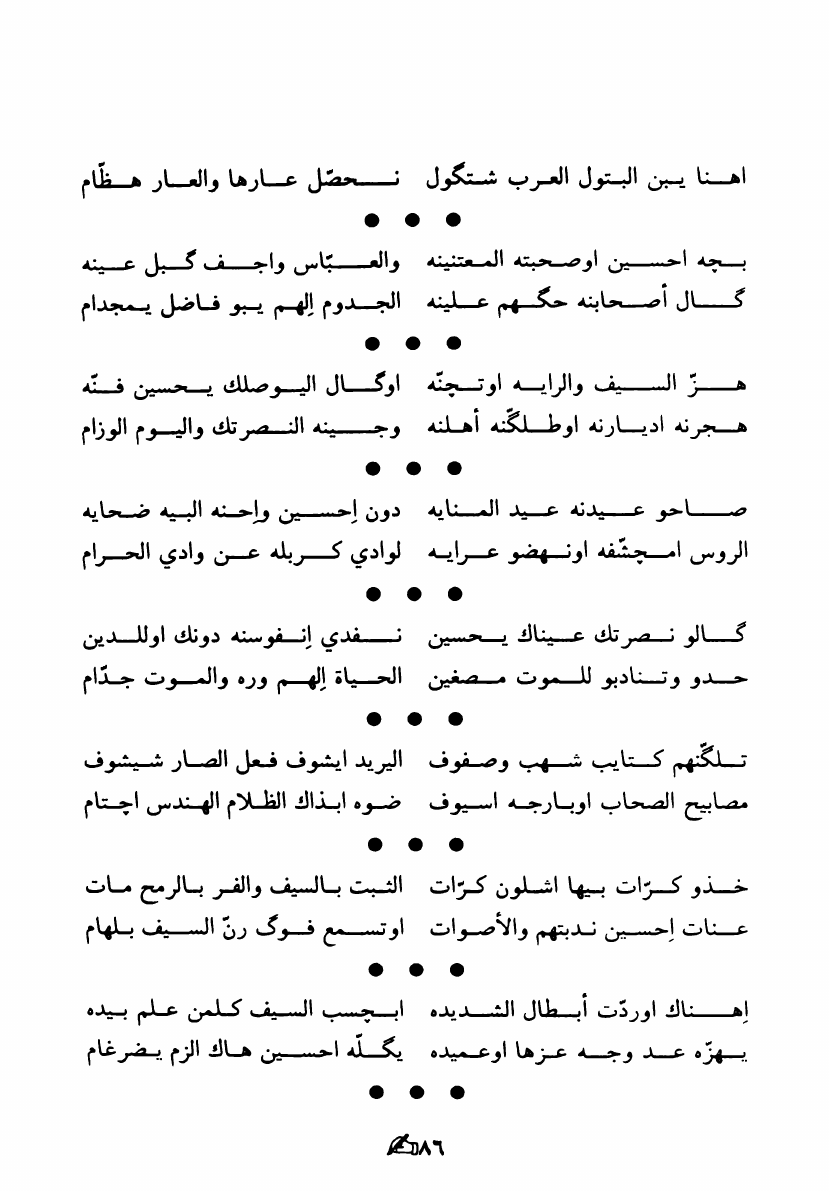 اهنا يبن البتول العرب شتگول نحصّل عارها والعار هظّام
● ● ●
بچه احسين اوصحبته المعتنينه والعبّاس واجف گبل عينه
گال أصحابنه حگهم علينه الجدوم إلهم يبو فاضل يمجدام
● ● ●
هزّ السيف والرايه اوتچنّه اوگال اليوصلك يحسين فنّه
هجرنه اديارنه اوطلگنه أهلنه وجينه النصرتك واليوم الوزام
● ● ●
صاحو عيدنه عيد المنايه دون إحسين وإحنه البيه ضحايه
الروس امچشّفه اونهضو عرايه لوادي كربله عن وادي الحرام
● ● ●
گالو نصرتك عيناك يحسين نفدي إنفوسنه دونك اوللدين
حدو وتنادبو للموت مصغين الحياة إلهم وره والموت جدّام
● ● ●
تلگّنهم كتايب شهب وصفوف اليريد ايشوف فعل الصار شيشوف
مصابيح الصحاب اوبارجه اسيوف ضوه ابذاك الظلام الهندس اچتام
● ● ●
خذو كرّات بيها اشلون كرّات الثبت بالسيف والفر بالرمح مات
عنات إحسين ندبتهم والأصوات اوتسمع فوگ رنّ السيف بلهام
● ● ●
إهناك اوردّت أبطال الشديده ابچسب السيف كلمن علم بيده
يهزّه عد وجه عزها اوعميده يگلّه احسين هاك الزم يضرغام
● ● ●
٨٦